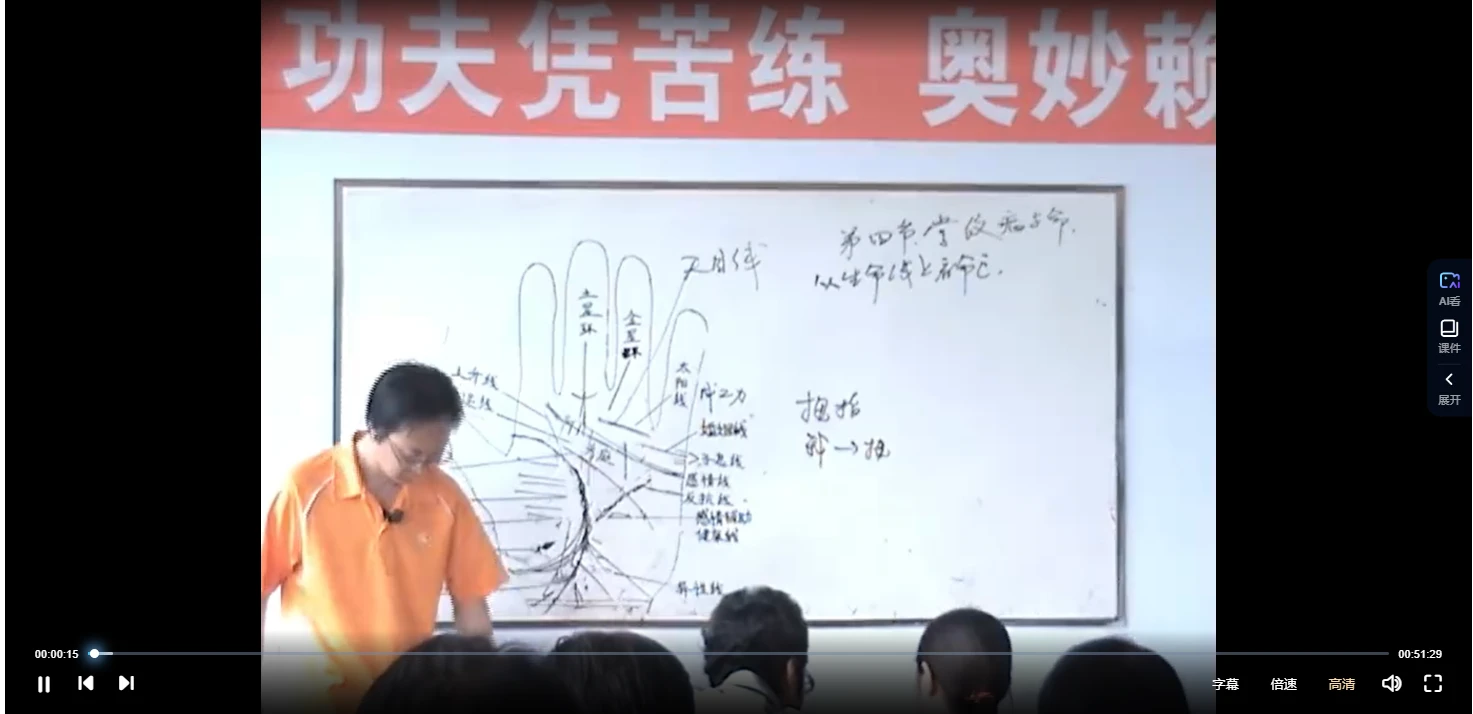 功夫凭苦练 奥妙赖
第四节.掌纹病与命.
从生命线上看命运.
天目线
土星环
金星环
太阳线
成工力
婚姻线
子息线
感情线
反抗线
感情辅助
健康线
异性线
上升线
拇指
AI看
课件
展开
00:00:15
00:51:29
字幕
倍速
高清